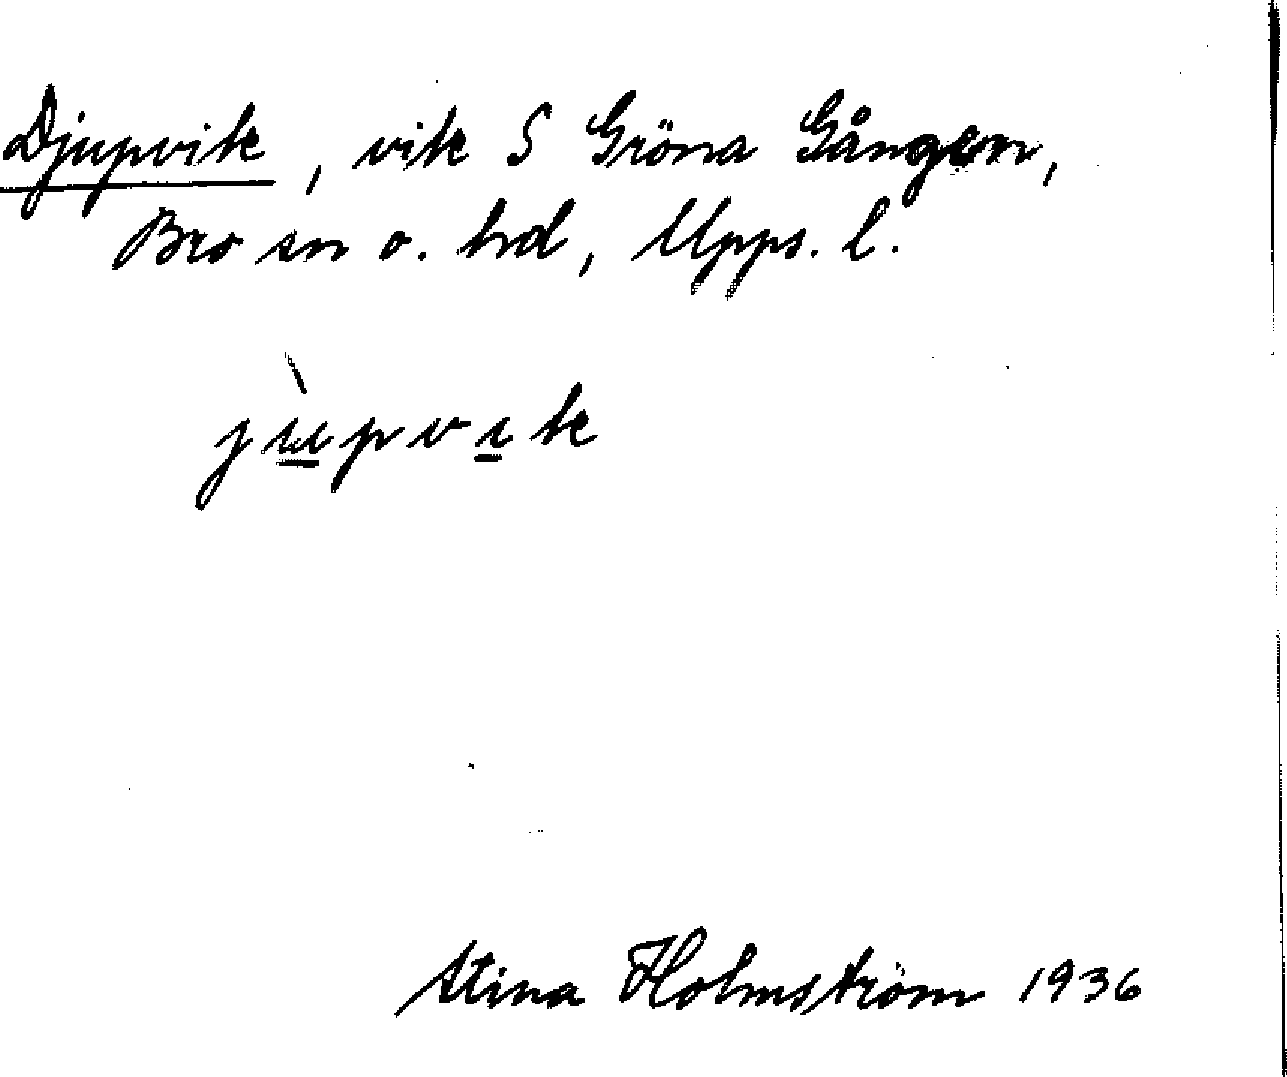 Djupvik, vik S Gröna Gången,
Bro sn o. hd, Upps. l.
jùpvik
Stina Holmström 1936